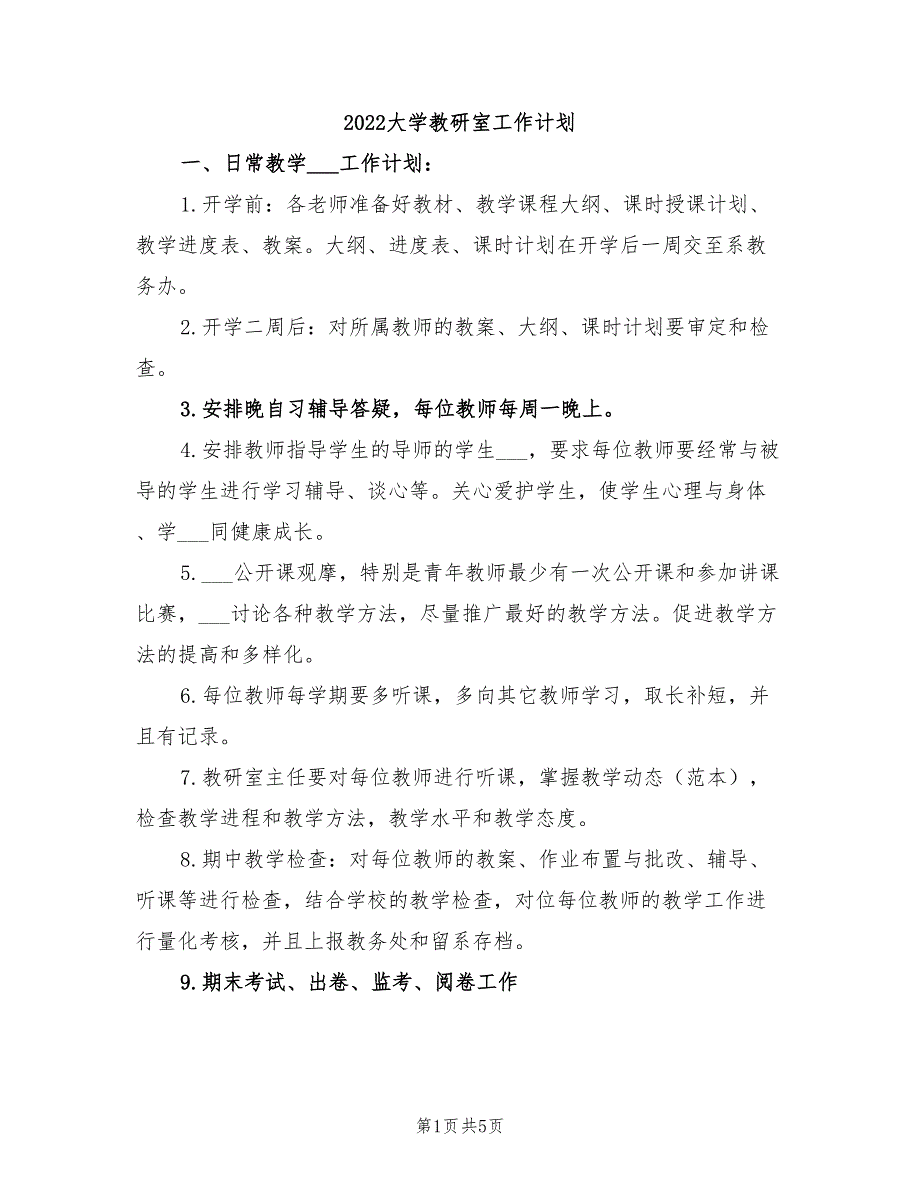 2022大学教研室工作计划
一、日常教学___工作计划：
1.开学前：各老师准备好教材、教学课程大纲、课时授课计划、
教学进度表、教案。大纲、进度表、课时计划在开学后一周交至系教
务办。
2.开学二周后：对所属教师的教案、大纲、课时计划要审定和检
查。
3.安排晚自习辅导答疑，每位教师每周一晚上。
4.安排教师指导学生的导师的学生___，要求每位教师要经常与被
导的学生进行学习辅导、谈心等。关心爱护学生，使学生心理与身体
、学___同健康成长。
5.___公开课观摩，特别是青年教师最少有一次公开课和参加讲课
比赛，___讨论各种教学方法，尽量推广最好的教学方法。促进教学方
法的提高和多样化。
6.每位教师每学期要多听课，多向其它教师学习，取长补短，并
且有记录。
7.教研室主任要对每位教师进行听课，掌握教学动态（范本），
检查教学进程和教学方法，教学水平和教学态度。
8.期中教学检查：对每位教师的教案、作业布置与批改、辅导、
听课等进行检查，结合学校的教学检查，对位每位教师的教学工作进
行量化考核，并且上报教务处和留系存档。
9.期末考试、出卷、监考、阅卷工作
第1页共5页